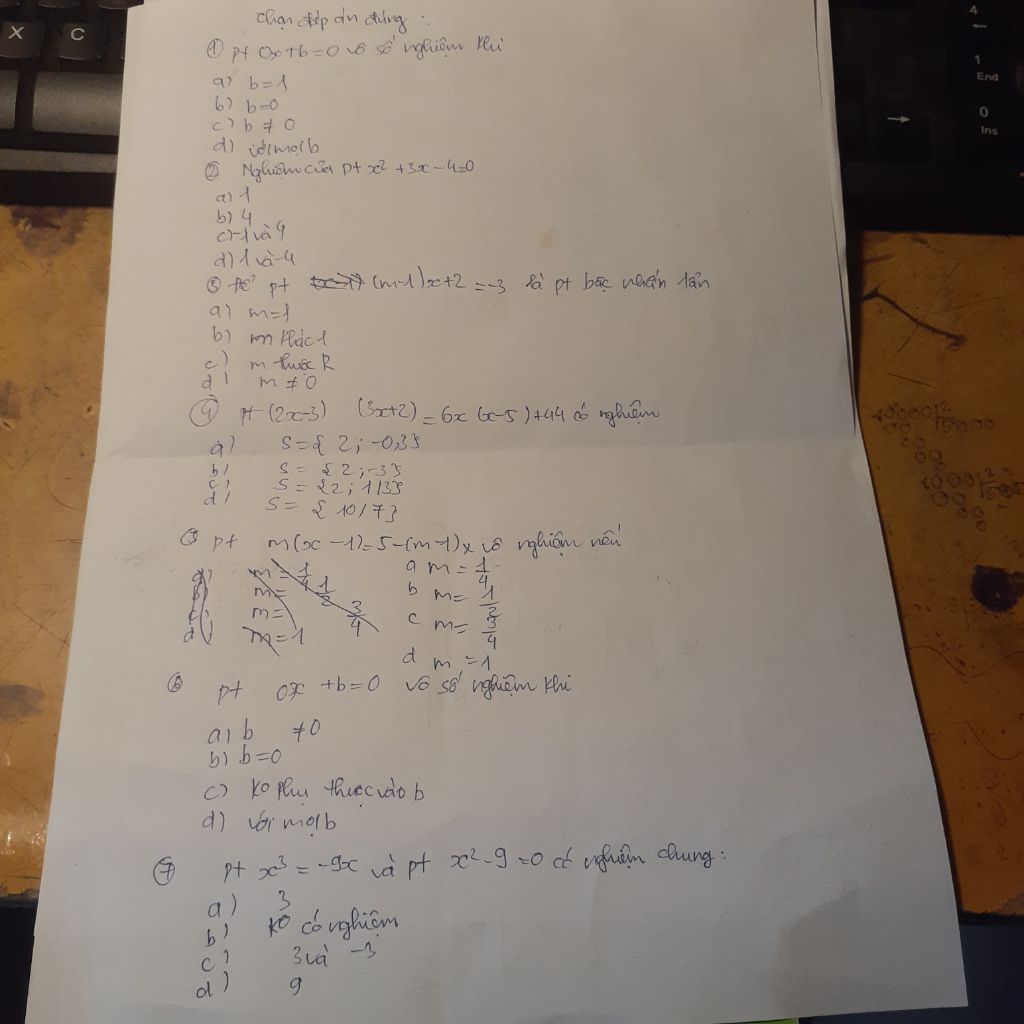 Chọn đáp án đúng:
① pt 0x+b=0 vô số nghiệm khi
a) b=1
b) b=0
c) b ≠ 0
d) với mọi b
② Nghiệm của pt x² +3x-4=0
a) 1
b) 4
c) -1 và 4
d) 1 và -4
③ Để pt (m-1)x+2 =-3 là pt bậc nhất 1 ẩn
a) m=1
b) m khác 1
c) m thuộc R
d) m ≠ 0
④ pt (2x-3) (3x+2) = 6x (x-5) +44 có nghiệm
a) S={ 2; -0,3}
b) S= {2;-3}
c) S= {2; 1/3}
d) S= {10/7}
pt m(x-1)=5-(m-1)x vô nghiệm nếu
a m= 1/4
b m= 1/2
c m= 3/4
d m =1
⑥ pt 0x +b=0 vô số nghiệm khi
a) b ≠0
b) b=0
c) ko phụ thuộc vào b
d) với mọi b
⑦ pt x³ = -9x và pt x²-9=0 có nghiệm chung:
a) 3
b) ko có nghiệm
c) 3 và -3
d) 9
X
C
4
←
1
End
0
Ins
→